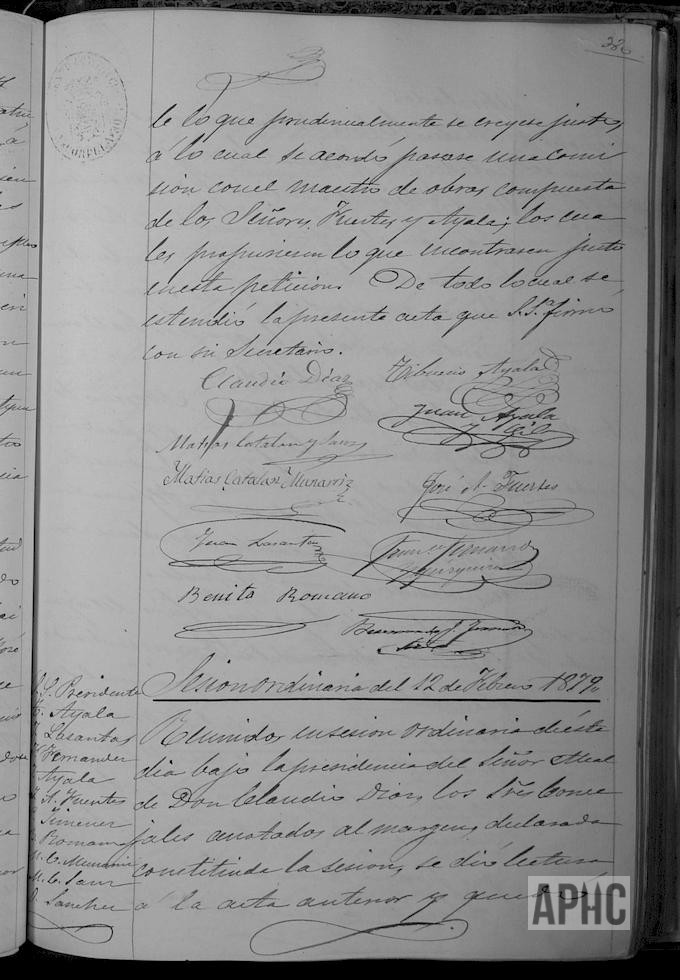 220
le lo que prudencialmente se creyese justo,
á lo cual se acordó pasase una comi
sion con el maestro de obras compuesta
de los Señores, Fuertes y Ayala; los cua
les propusiesen lo que incontrasen justo
en esta peticion. De todo lo cual se
estendió la presente acta que S.S. firmó
con sii Secretario.
Claudio Diaz
Tiburcio Ayala
Juan Ayala
y Gil
Matias Catalan y Sanz
Matias Catalan Munarriz
José A. Fuertes
Juan Lasanta
Benito Romano
Sesion ordinaria del 12 de Febrero 1879
S. S. Presidente
Ayala
Lasantas
Fernandez
Ayala
S. A. Fuertes
Jimenez
Romano
M. C. Munarriz
M. C. Sanz
Sanchez
Reunidos en sesion ordinaria de éste
dia bajo la presidencia del Señor Alcal
de Don Claudio Diaz, los Sres Conce
jales anotados al margen, declarada
constituida la sesion, se dió lectura
á la acta anterior y quedó
APHC